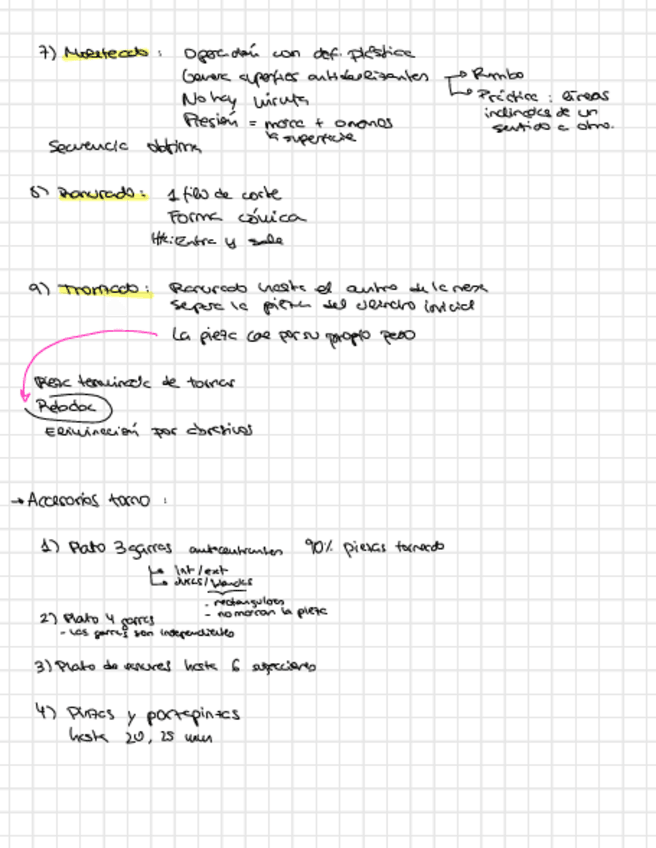 7) Moleteado : Operación con def. plástica
Genera superficies antideslizantes → Rombo
→ Práctica : líneas
inclinadas de un
sentido a otro.
No hay viruta
Presión = marca +
la superficie
Secuencia óptima
8) Ranurado : 1 filo de corte
Forma cónica
Hta: Entra y sale
9) Tronzado : Ranurado hasta el centro de la
separa la pieza del cilindro inicial
La pieza cae por su propio peso
Pieza terminada de tornar
Eliminación por abrasivos
→ Accesorios torno :
1) Plato 3 garras autocentrantes 90% piezas torneado
→ Int/ext
→ duras/blandas
- rectangulares
- no marcan la pieza
2) Plato 4 garras
- Las garras son independientes
3) Plato de hasta 6 sujeciones
4) Pinzas y portapinzas
hasta 20, 25 mm